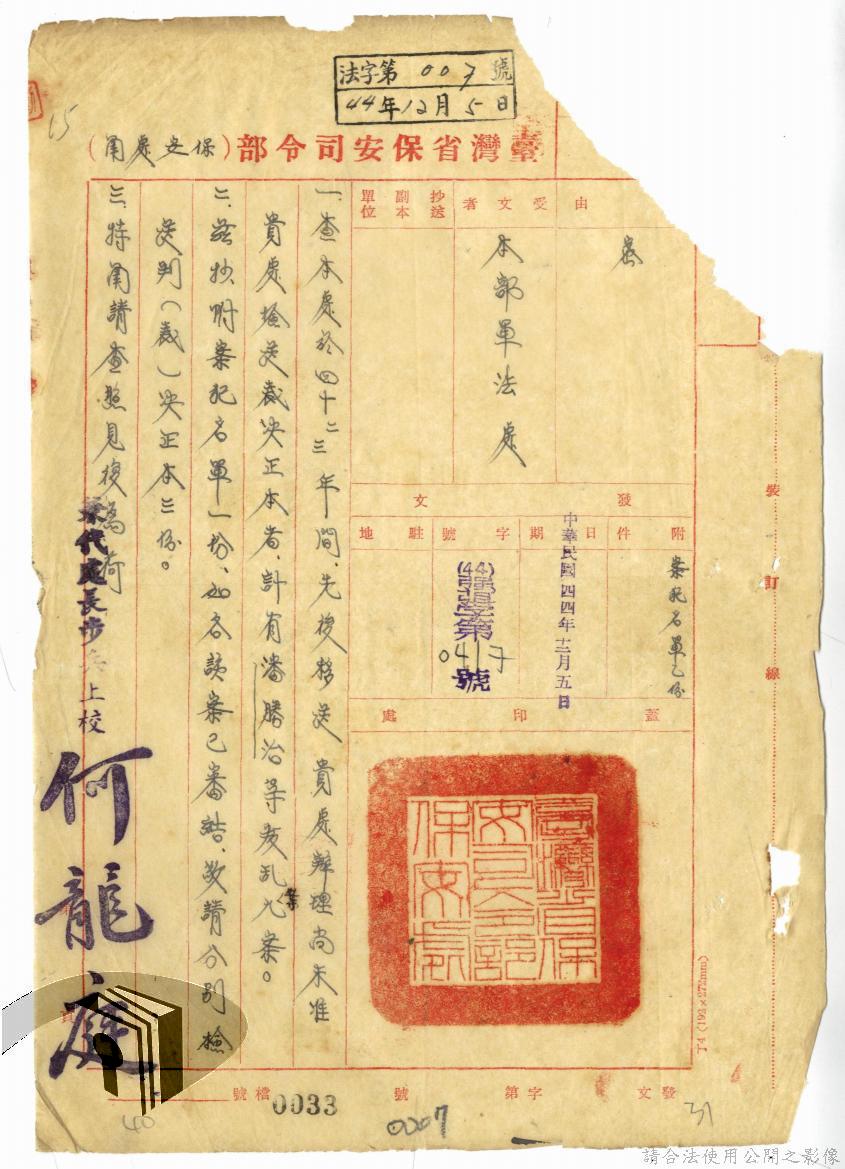 法字第007號
44年12月5日
15
臺灣省保安司令部(保安處 )
由
受文者
抄送副本單位
本部軍法處
發文
附件
日期
字號
駐地
案犯名單乙份
中華民國四四年十二月五日
(44)
第
號
蓋印處
臺灣省保安司令部保安處
一、查本處於四十二三年間、先後移送 貴處辦理尚未准
貴處檢送裁決正本者、計有潘勝治等叛乱九案。
二、茲抄附案犯名單一份、如各該案已審結、敬請分別檢
送判(裁)決正本三份。
三、特 請查照見復為荷
兼代處長步兵上校
何龍庭
裝訂線
T4 (192×272mm)
發文 字第 號
檔號
0033
0007
40
31
請合法使用公開之影像